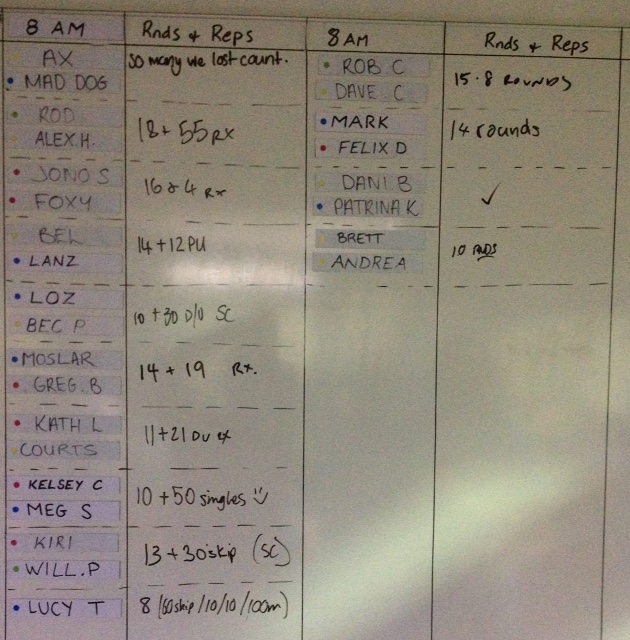 8 AM
Rnds & Reps
AX
MAD DOG
So many we lost count.
ROD
ALEX.H.
18 + 55 RX
JONO S
FOXY
16 & 4 Rx
BEL
LANZ
14 + 12 PU
LOZ
BEC P
10 + 30 D/U SC
MOSLAR
GREG.B
14 + 19 Rx.
KATH L
COURTS
11 + 21 DU
KELSEY C
MEG S
10 + 50 singles
KIRI
WILL.P
13 + 30 skip (SC)
LUCY T
8 (60skip/10/10/100m)
8 AM
Rnds & Reps
ROB C
DAVE C
15.8 ROUNDS
MARK
FELIX D
14 rounds
DANI B
PATRINA K
✓
BRETT
ANDREA
10 RNDS